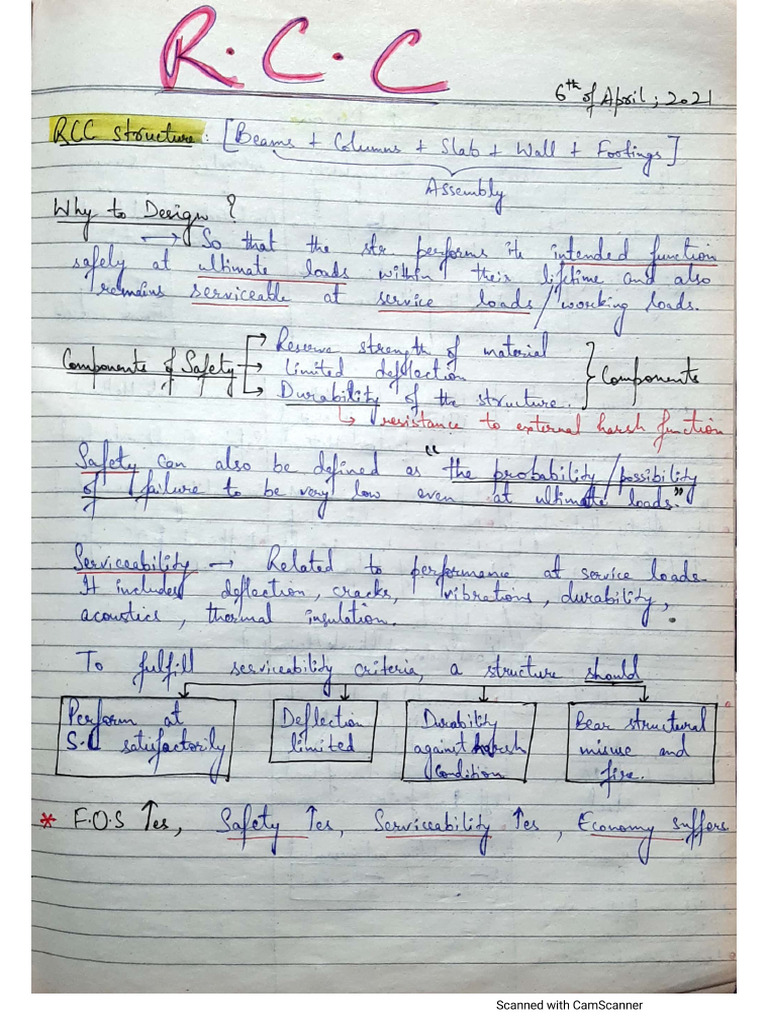 R.C.C
6th of April, 2021
RCC structure: [Beams + Columns + Slab + Wall + Footings]
Assembly
Why to Design ?
→ So that the str performs its intended function
safely at ultimate loads within their lifetime and also
remains serviceable at service loads/working loads.
Components of Safety → Reserve strength of material
→ limited deflection
→ Durability of the structure. } Components
↳ resistance to external harsh function
Safety can also be defined as "the probability/possibility
of failure to be very low even at ultimate loads."
Serviceability → Related to performance at service loads.
It includes deflection, cracks, vibrations, durability,
acoustics, thermal insulation.
To fulfill serviceability criteria, a structure should
Perform at
S.L satisfactorily
Deflection
limited
Durability
against harsh
condition
Bear structural
misuse and
fire.
* F.O.S ↑es, Safety ↑es, Serviceability ↑es, Economy suffers
Scanned with CamScanner